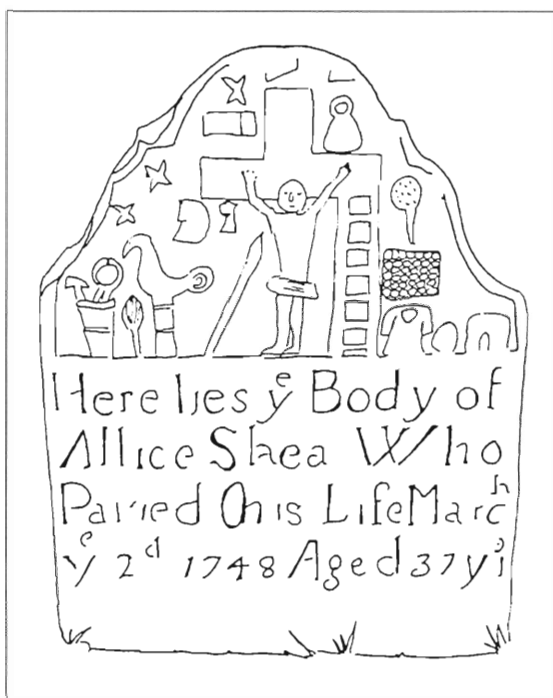 Here lies yᵉ Body of
Allice Shea Who
Parried This Life March
yᵉ 2ᵈ 1748 Aged 37 yˢ